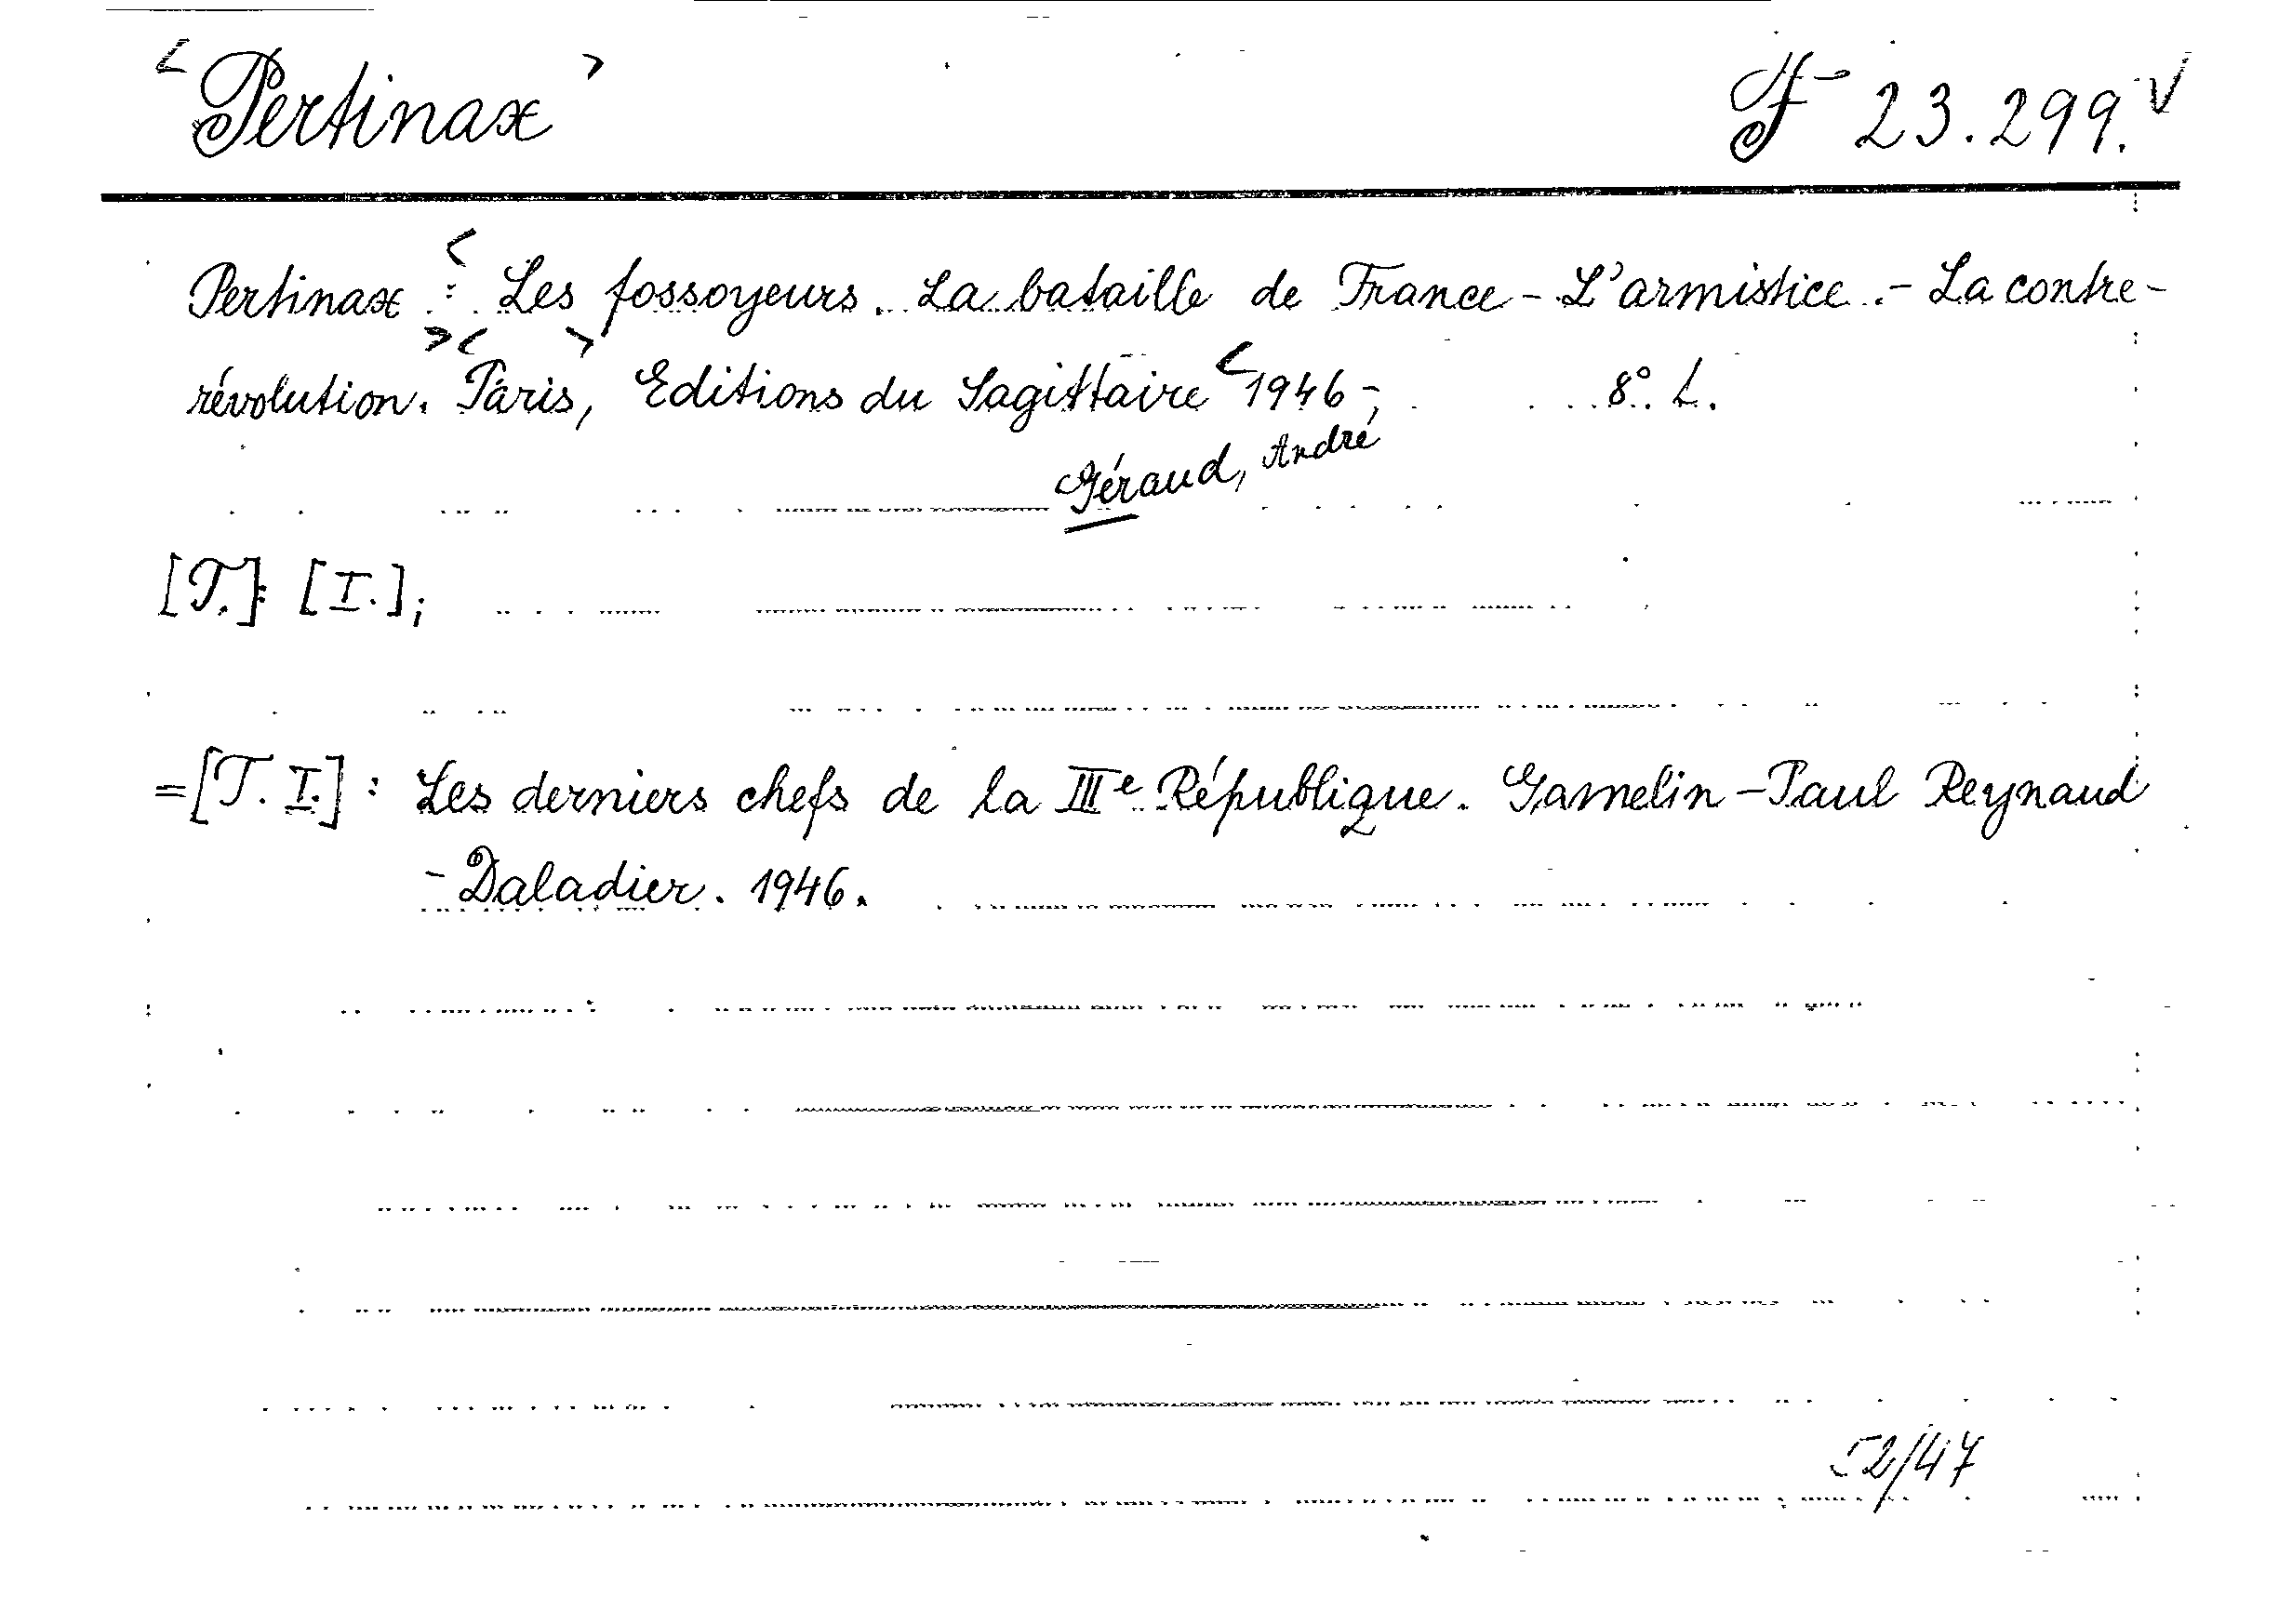 < Pertinax > F 23.299. √
Pertinax : < Les fossoyeurs. La bataille de France - L'armistice. - La contre-
révolution. > < Paris, > Editions du Sagittaire < 1946 -, 8° L.
Géraud, André
[T.]: [I.];
=[T. I.] : Les derniers chefs de la IIIe République. Gamelin - Paul Reynaud
- Daladier. 1946.
2/47